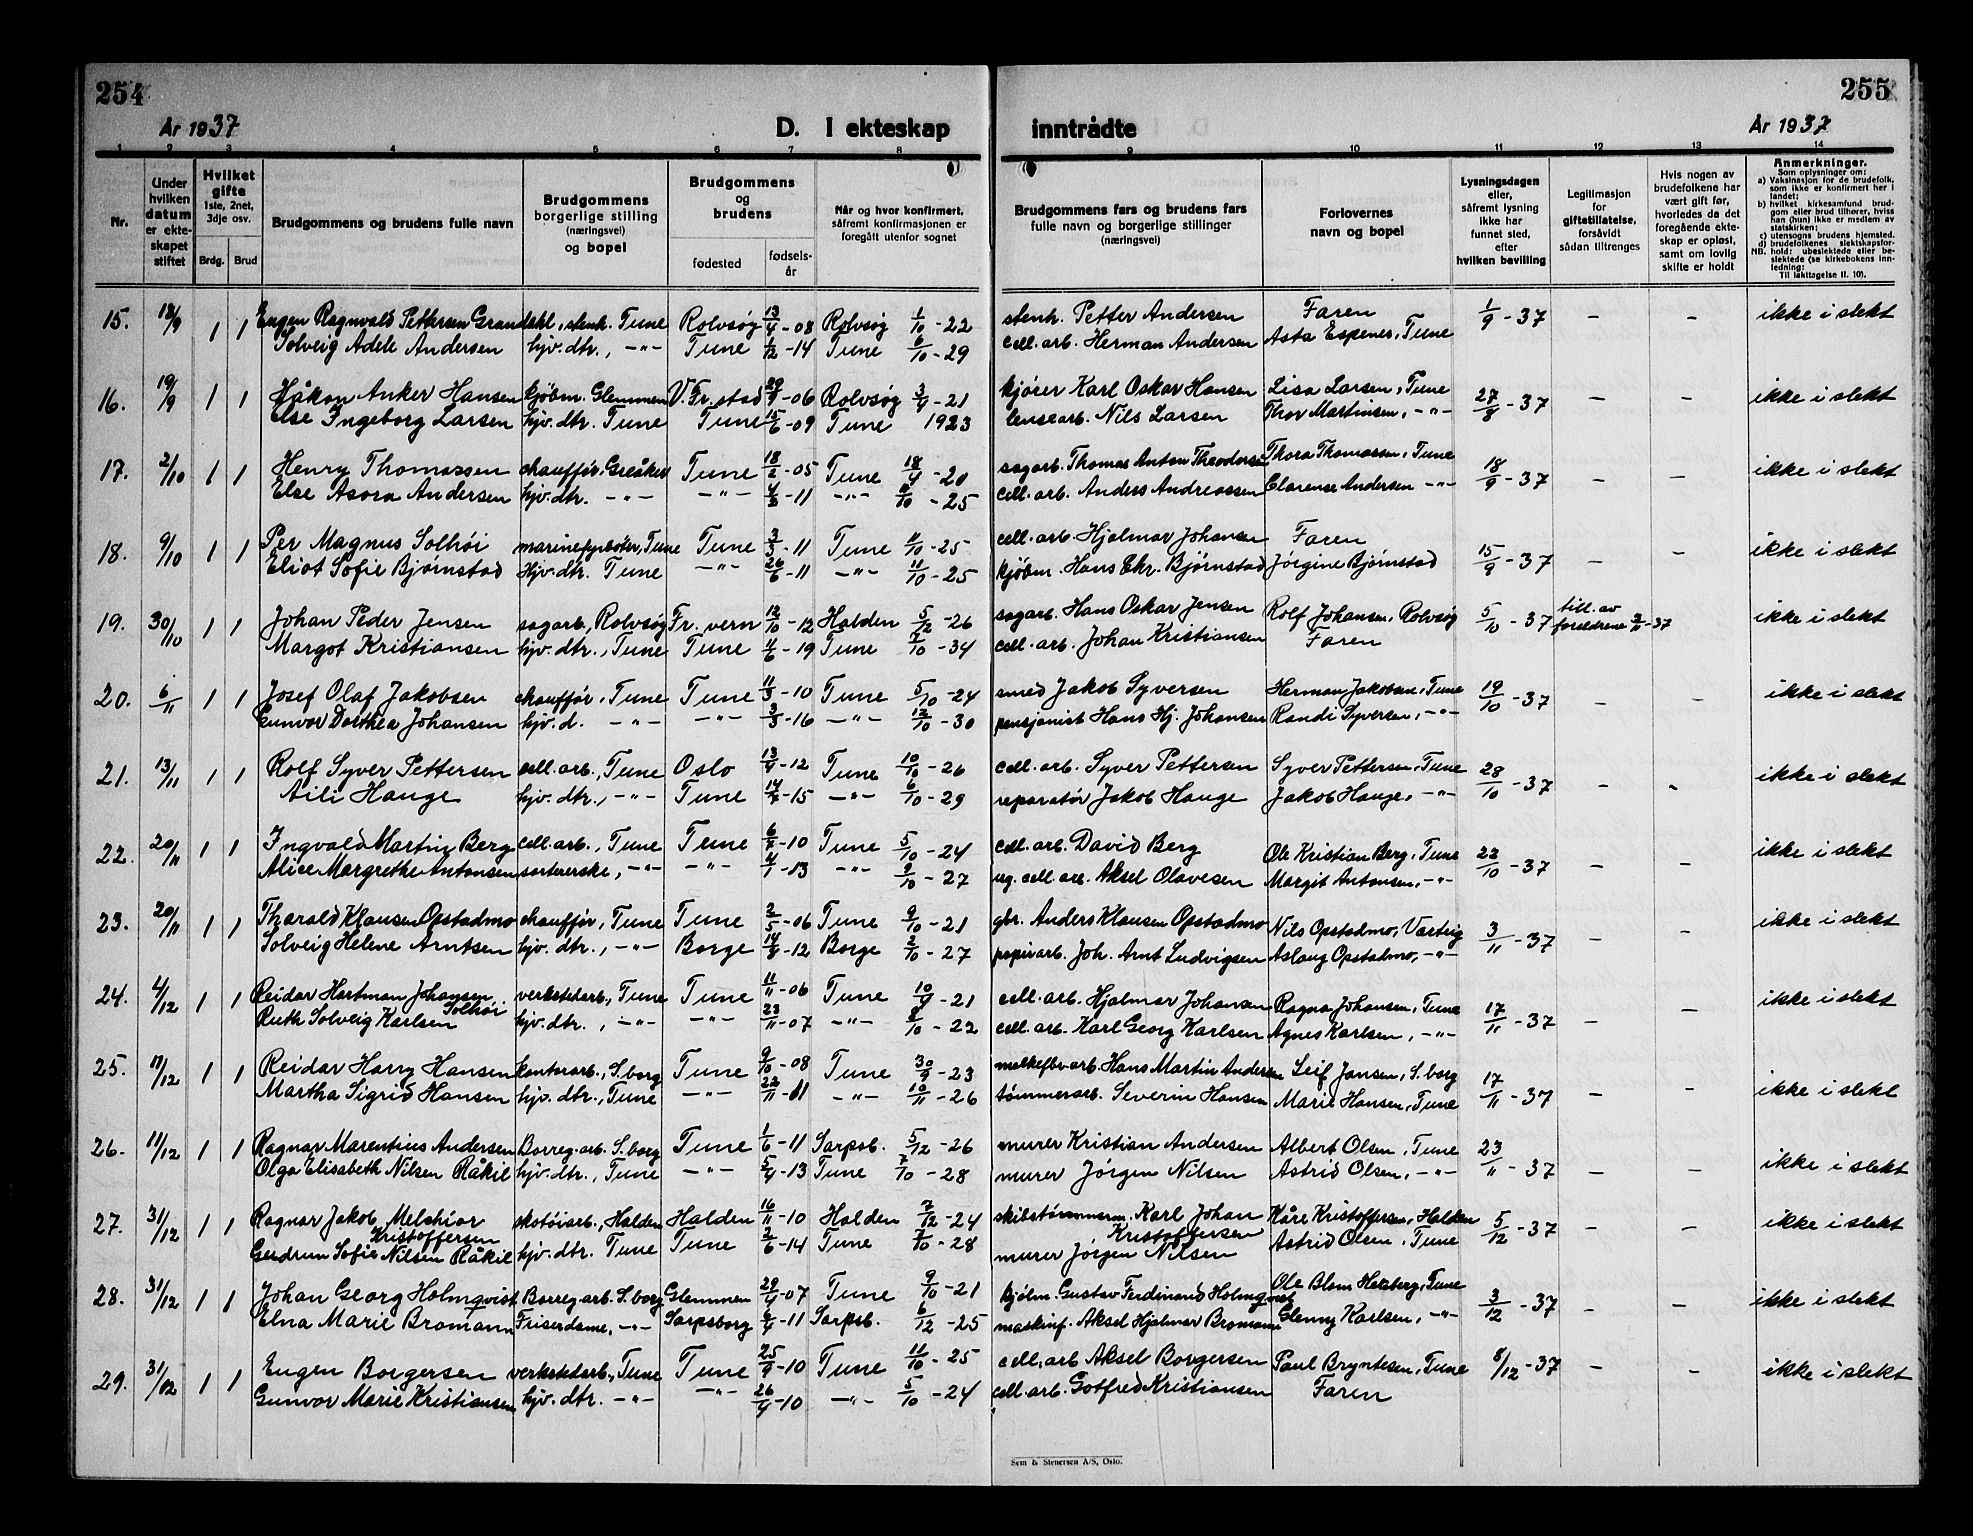 254
255
År 1937
D. I ekteskap
inntrådte
År 1937
1 2 3 4 5 6 7 8 9 10 11 12 13 14
Nr.
Under hvilken datum er ekteskapet stiftet
Hvilket gifte 1ste, 2net, 3dje osv.
Brdg. Brud
Brudgommens og brudens fulle navn
Brudgommens borgerlige stilling (næringsvei) og bopel
Brudgommens og brudens
fødested
fødselsår
Når og hvor konfirmert, såfremt konfirmasjonen er foregått utenfor sognet
Brudgommens fars og brudens fars fulle navn og borgerlige stillinger (næringsvei)
Forlovernes navn og bopel
Lysningsdagen eller, såfremt lysning ikke har funnet sted, efter hvilken bevilling
Legitimasjon for giftetillatelse, forsåvidt sådan tiltrenges
Hvis nogen av brudefolkene har vært gift før, hvorledes da det foregående ekteskap er opløst, samt om lovlig skifte er holdt
Anmerkninger.
Som oplysninger om:
a) Vaksinasjon for de brudefolk, som ikke er konfirmert her i landet;
b) hvilket kirkesamfund brudgom eller brud tilhører, hviss han (hun) ikke er medlem av statskirken;
c) utensogns brudens hjemsted.
d) brudefolkenes slektskapsforhold: ubeslektede eller beslektede (se kirkebokens innledning:
NB. Til iakttagelse II. 10).
15. 18/9 1 1 Eugen Ragnvald Pettersen Grandahl, stenh. Tune Rolvsøy 13/4-08 Rolvsøy 1/10-22 stenh. Petter Andersen Faren 1/9-37 - - ikke i slekt
Solveig Adele Andersen hjv. dtr., -"- Tune 1/12-14 Tune 6/10-29 cell. arb. Herman Andersen Asta Espenes, Tune
16. 19/9 1 1 Håkon Anker Hansen kjøbm. Glemmen V. Fr.stad 29/9-06 Rolvsøy 3/4-21 kjører Karl Oskar Hansen Lisa Larsen, Tune 27/8-37 - - ikke i slekt
Else Ingeborg Larsen hjv. dtr. Tune Tune 15/6-09 Tune 1923 lensearb. Nils Larsen Thor Martinsen, -"-
17. 2/10 1 1 Henry Thomassen chauffør, Greåker Tune 18/2-05 Tune 18/4-20 sagarb. Thomas Anton Theodorsen Thora Thomassen, Tune 18/9-37 - - ikke i slekt
Else Asora Andersen hjv. dtr. -"- -"- 4/3-11 -"- 11/10-25 cell. arb. Anders Andreassen Clarense Andersen -"-
18. 9/10 1 1 Per Magnus Solhøi marinefyrbøter, Tune Tune 3/3-11 Tune 11/10-25 cell. arb. Hjalmar Johansen Faren 15/9-37 - - ikke i slekt
Eliot Sofie Bjørnstad Hjv. dtr. Tune -"- 26/6-11 -"- 11/10-25 kjøbm. Hans Chr. Bjørnstad Jørgine Bjørnstad
19. 30/10 1 1 Johan Peder Jensen sagarb., Rolvsøy Fr. vern 12/10-12 Halden 5/12-26 sagarb. Hans Oskar Jensen Rolf Johansen, Rolvsøy 5/10-37 till. av foreldrene 2/11-37 ikke i slekt
Margot Kristiansen hjv. dtr., Tune Tune 11/6-19 Tune 7/10-34 cell. arb. Johan Kristiansen Faren
20. 6/11 1 1 Josef Olaf Jakobsen chauffør, Tune Tune 11/3-10 Tune 5/10-24 smed Jakob Syversen Herman Jakobsen, Tune 19/10-37 - - ikke i slekt
Gunvor Dorthea Johansen hjv. d. -"- -"- 3/3-16 -"- 12/10-30 pensjonist Hans Hj. Johansen Randi Syversen, -"-
21. 13/11 1 1 Rolf Syver Pettersen cell. arb., Tune Oslo 13/9-12 Tune 10/10-26 cell. arb. Syver Pettersen Syver Pettersen, Tune 28/10-37 - - ikke i slekt
Aili Hauge hjv. dtr., -"- Tune 14/7-15 -"- 6/10-29 reparatør Jakob Hauge Jakob Hauge, -"-
22. 20/11 1 1 Ingvald Martin Berg cell. arb., Tune Tune 6/7-10 Tune 5/10-24 cell. arb. David Berg Ole Kristian Berg, Tune 22/10-37 - - ikke i slekt
Alice Margrethe Antonsen sortererske, -"- -"- 4/1-13 -"- 9/10-27 ug. cell. arb. Aksel Olavesen Margit Antonsen, -"-
23. 20/11 1 1 Tharald Klausen Opstadmo chauffør, Tune Tune 2/5-06 Tune 9/10-21 gbr. Anders Klausen Opstadmo Nils Opstadmo, Varteig 3/11-37 - - ikke i slekt
Solveig Helene Arntsen hjv. dtr., -"- Borge 14/8-12 Borge 2/10-27 papirarb. Joh. Arnt Ludvigsen Aslaug Opstadmo, -"-
24. 4/12 1 1 Reidar Hartman Johansen Solhøi verkstedarb., Tune Tune 11/11-06 Tune 10/9-21 cell. arb. Hjalmar Johansen Ragna Johansen, Tune 17/11-37 - - ikke i slekt
Ruth Solveig Karlsen hjv. dtr., -"- -"- 23/11-07 -"- 8/10-22 cell. arb. Karl Georg Karlsen Agnes Karlsen, -"-
25. 11/12 1 1 Reidar Harry Hansen kontorarb., S.borg Tune 9/10-08 Tune 30/9-23 melkefbr.arb. Hans Martin Andersen Leif Jansen, S.borg 17/11-37 - - ikke i slekt
Martha Sigrid Hansen hjv. dtr., Tune -"- 22/11-11 -"- 10/11-26 tømmerarb. Severin Hansen Marie Hansen, Tune
26. 11/12 1 1 Ragnar Marentius Andersen Borreg. arb. S.borg Tune 1/6-11 Sarpsb. 5/12-26 murer Kristian Andersen Albert Olsen, Tune 23/11-37 - - ikke i slekt
Olga Elisabeth Nilsen Råkil hjv. dtr., Tune -"- 5/4-13 Tune 7/10-28 murer Jørgen Nilsen Astrid Olsen, -"-
27. 31/12 1 1 Ragnar Jakob Melchior Kristoffersen skotøiarb., Halden Halden 16/11-10 Halden 7/12-24 skibstømmerm. Karl Johan Kristoffersen Kåre Kristoffersen, Halden 5/12-37 - - ikke i slekt
Gerdrun Sofie Nilsen Råkil hjv. dtr. Tune Tune 2/6-14 Tune 7/10-28 murer Jørgen Nilsen Astrid Olsen, Tune
28. 31/12 1 1 Johan Georg Holmqvist Borreg. arb. S.borg Glemmen 29/4-07 Tune 9/10-21 kjølm. Gustav Ferdinand Holmqvist Ole Blom Herberg, Tune 3/12-37 - - ikke i slekt
Elna Marie Bromann Friserdame, -"- Sarpsborg 8/4-11 Sarpsb. 6/12-25 maskinf. Aksel Hjalmar Bromann Glenny Karlsen, -"-
29. 31/12 1 1 Eugen Borgersen verkstedarb., Tune Tune 25/9-10 Tune 11/10-25 cell. arb Aksel Borgersen Paul Bryntesen, Tune 8/12-37 - - ikke i slekt
Gunvor Marie Kristiansen hjv. dtr. -"- -"- 26/4-10 -"- 5/10-24 cell. arb. Gotfred Kristiansen Faren
Sem & Stenersen A/S, Oslo.